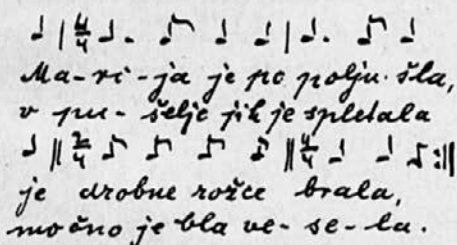 4/4
Ma-ri-ja je po polju šla,
v pu-šeljc jih je spletala
2/4 4/4
je drobne rožce brala,
močno je bla ve-se-la.